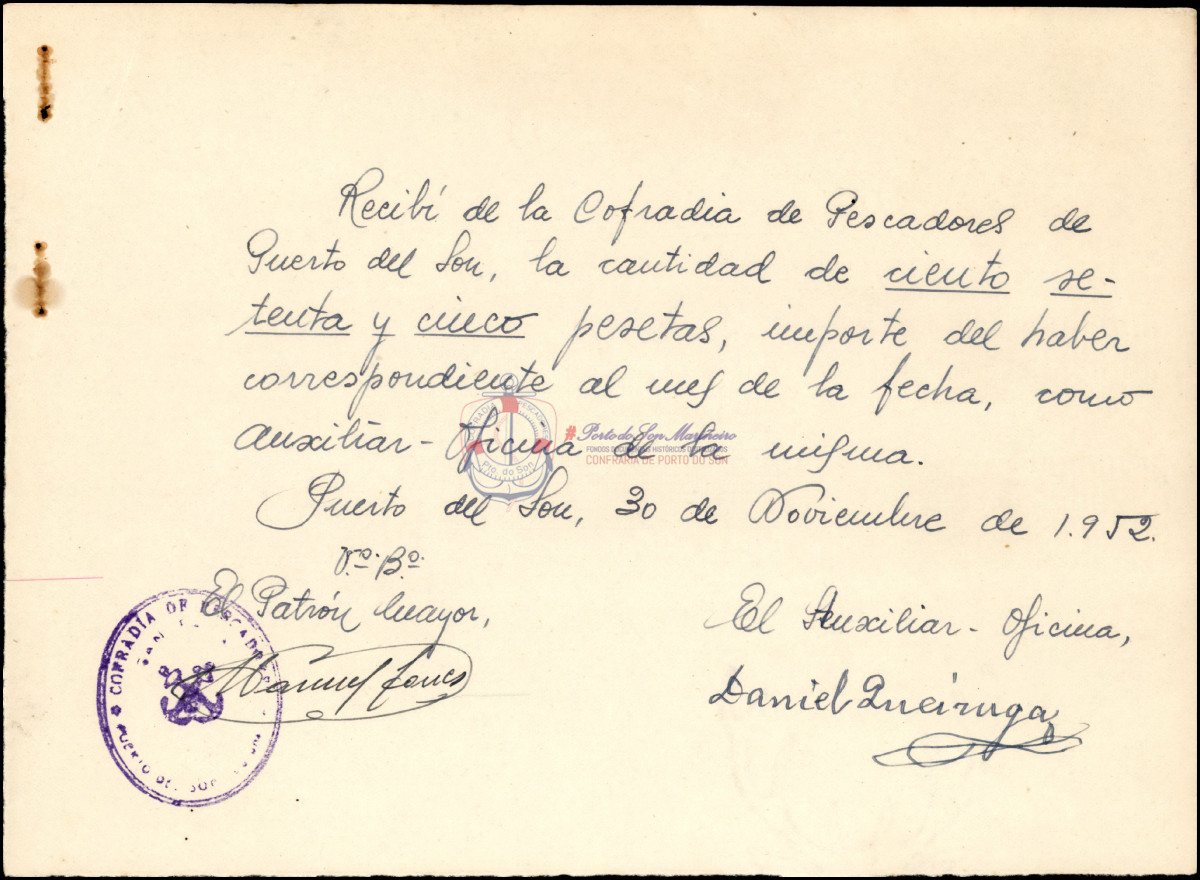 Recibí de la Cofradia de Pescadores de
Puerto del Son, la cantidad de ciento se-
tenta y cinco pesetas, importe del haber
correspondiente al mes de la fecha, como
Auxiliar-Oficina de la misma.
Puerto del Son, 30 de Noviembre de 1.952.
Vº. Bº.
El Patrón Mayor,
El Auxiliar-Oficina,
Manuel
Daniel Queiruga
COFRADÍA DE PESCADORES
PUERTO DEL SON
Pto. do Son
#Porto do Son Mariñeiro
CONFRARÍA DE PORTO DO SON